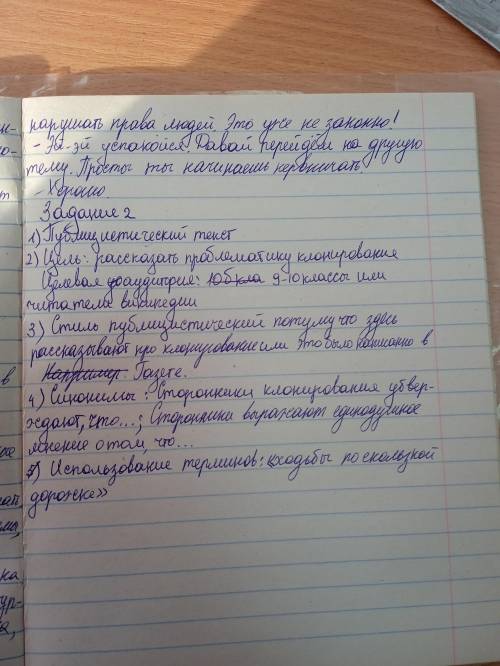 нарушать права людей. Это уже не законно!
- Эй-эй успакойся. Давай перейдём на другую
тему. Просты ты начинаешь нервничать.
- Хорошо.
Задание 2
1) Публицистический текст
2) Цель: рассказать проблематику клонирование
Целевая аоаудитория: 9-10 классы или
читатели википедии
3) Стиль публицистический потому что здесь
рассказывают про клонирование или это было написанно в
Например: Газете.
4) Синонимы: Сторонники клонирования утвер-
ждают, что...; Сторонники выражают единодушное
мнение о том, что...
5) Использование терминов: «ходьбы по скользкой
дорожке»
ка